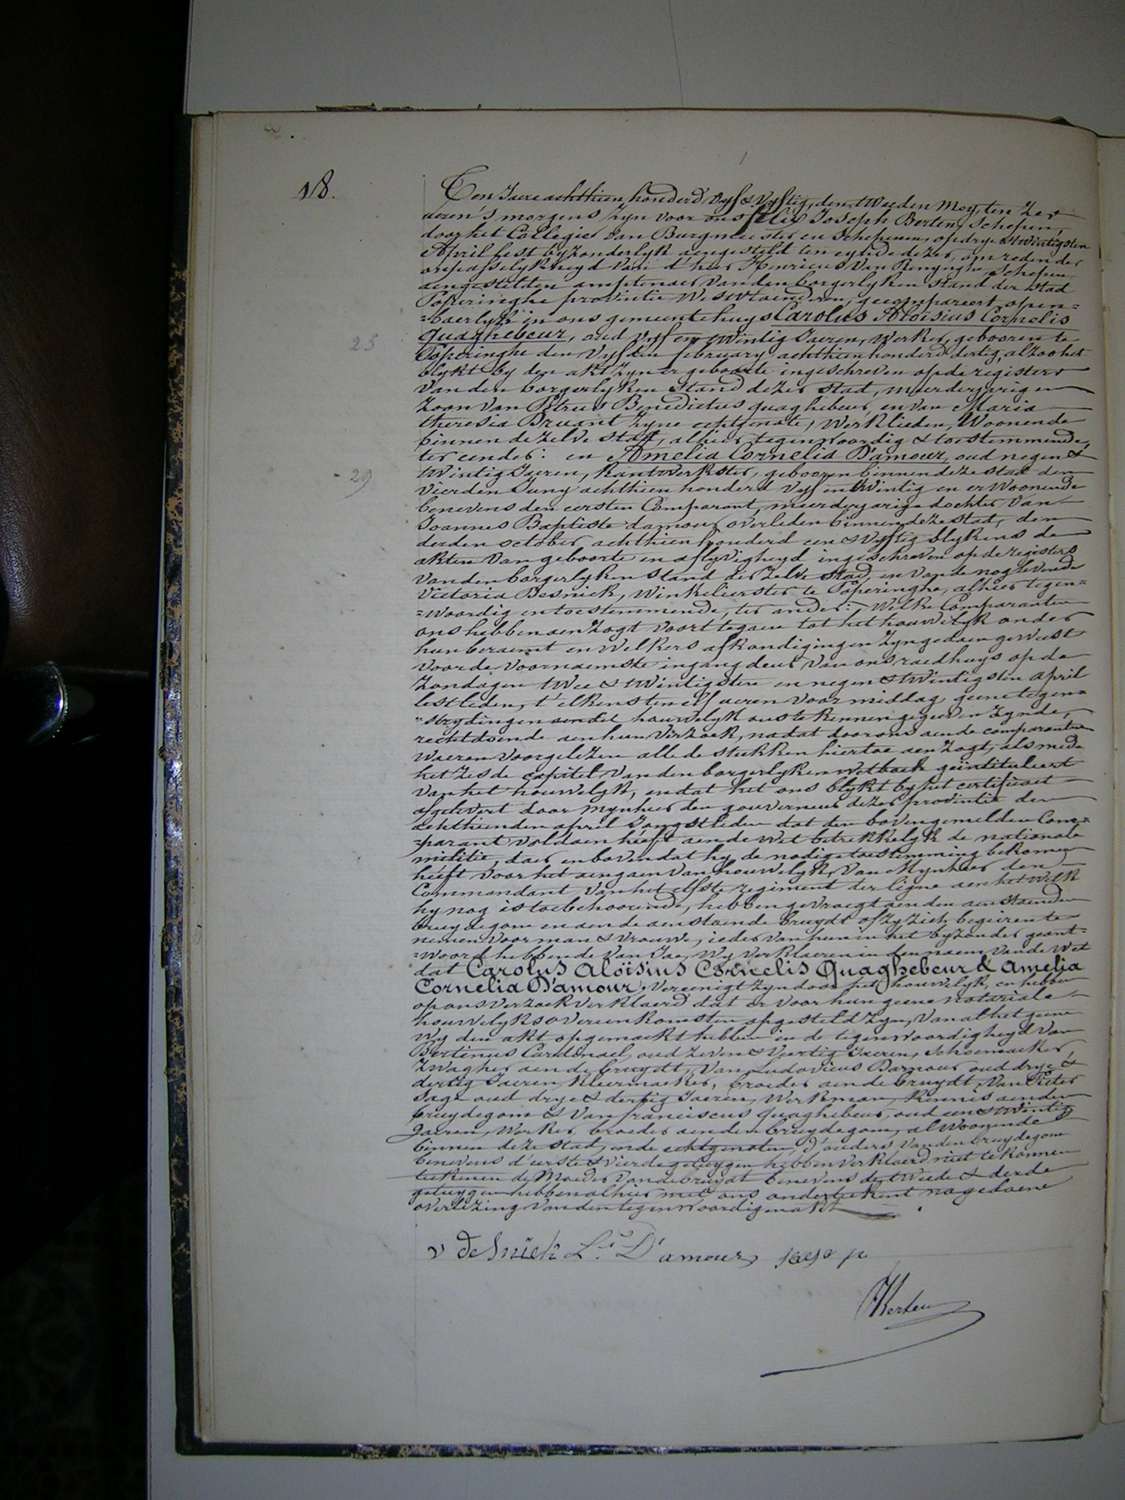 18.
Ten Jaere achthien honderd vyf & vyftig, den tweeden Mey, ten zes
ueren 's morgens zyn voor ons Felix Joseph Berten, Schepen,
door het Collegie van Burgmeester en Schepenen, op drye & twintigsten
April lest byzonderlyk aengesteld ten eynde dezer, om reden der
onpasselykheyd van d'heer Henricus Van Renynghe Schepen
aengestelden amptenaer van den borgerlyken stand der stad
Poperinghe provintie Westvlaenderen, gecompareert open=
=baerlyk in ons gemeentehuys Carolus Aloisius Cornelis
Quaghebeur, oud vyf en twintig Jaeren, werker, gebooren te
25
Poperinghe den vyfden february achthien honderd dertig, alzoo het
blykt by den akt zyner geboorte ingeschreven op de registers
van den borgerlyken Stand dezer stad, meerderjarigen
zoon van Petrus Benedictus Quaghebeur en van Maria
theresia Bruant zyne echtgenote, werklieden, woonende
binnen de zelve stad, alhier tegenwoordig & toestemmende,
ter eender: en Amelia Cornelia D'amour, oud negen &
29
twintig Jaeren, kantwerkster, gebooren binnen deze stad den
vierden Juny achthien honderd vyf en twintig en er woonende
benevens den eersten Comparant, meerderjarige dochter van
Joannes Baptiste damour overleden binnen deze stad, den
derden october achthien honderd een & vyftig blykens de
akten van geboorte en aflyvigheyd ingeschreven op de registers
van den borgerlyken stand der zelve stad, en van de nog levende
Victoria Desnick, winkelierster te Poperinghe, alhier tegen=
=woordig en toestemmende, ter ander: Welke Comparanten
ons hebben aenzogt voort te gaen tot het houwelyk onder
hun beraemt en welkers afkondigingen zyn gedaen geweest
voor de voornaemste ingang deur van ons raedhuys op de
Zondagen twee & twintigsten en negen & twintigsten april
lestleden, t'elkens ten elf ueren voor middag, geene tegen=
=strydingen aen dit houwelyk ons te kennen gegeven zynde,
rechtdoende aen hun verzoek, nadat door ons aen de comparanten
waeren voorgelezen alle de stukken hiertoe aenzogt, als mede
het zesde capitel van den borgerlyken wetboek geintituleert
van het houwelyk, en dat het ons blykt by het certificaet
afgelevert door mynheer den gouverneur dezer provintie den
achthienden april Jongstleden dat den bovengemelden Com=
=parant voldaen heeft aen de wet betrekkelyk de nationale
militie, daer en boven dat hy de nodige toestemming bekomen
heeft voor het aengaen van houwelyk, van Mynheer den
Commandant van het elfste regiment der ligne aen het welk
hy nog is toebehoorende, hebben gevraegt aen den aenstaenden
bruydegom en aen de aenstaende bruydt of zy zich begeiren te
nemen voor man & vrouwe, ieder van hun in het byzonder geant=
=woord hebbende van Jae, wy verklaeren in den naem van de Wet
dat Carolus Aloisius Cornelis Quaghebeur & Amelia
Cornelia D'amour, vereenigt zyn door het houwelyk, en hebben
op ons verzoek verklaerd dat er voor hun geene notariale
houwelyksovereenkomsten opgesteld zyn, van al het geene
wy den akt opgemaekt hebben in de tegenwoordigheyd van
Bertinus Cardinael, oud zeven & veertig Jaeren, Schoenmaeker,
zwager aen de bruydt, van Ludovicus Damour oud drye &
dertig Jaeren, kleermaeker, broeder aen de bruydt, van Pieter
Sage oud drye & dertig Jaeren, werkman, kennis aen den
bruydegom & van franciscus Quaghebeur, oud een & twintig
Jaeren, werker, broeder aen den bruydegom, al woonende
binnen deze stad, ende echtgenoten, d'ouders van den bruydegom
benevens d'eerste & vierde getuygen hebben verklaerd niet te konnen
teekenen de Moeder van de bruydt benevens de tweede & derde
getuygen hebben alhier met ons onderteekent na gedaene
overlezing van den tegenwoordigen akt
v deSnick Ls D'amour, Sage p
Berten